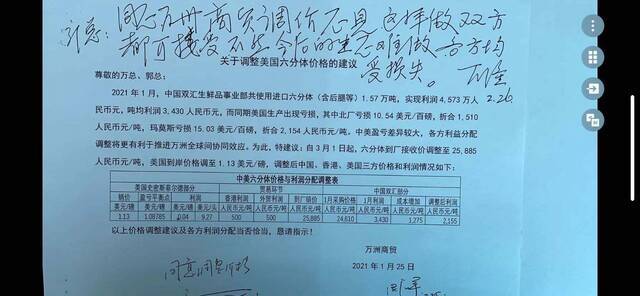 同意万洲商贸调价意见 这样做双方
都可接受 不然今后的生意难做 各方均
受损失。
2.26.
关于调整美国六分体价格的建议
尊敬的万总、郭总:
2021 年 1 月,中国双汇生鲜品事业部共使用进口六分体(含后腿等)1.57 万吨,实现利润 4,573 万人
民币元,吨均利润 3,430 人民币元,而同期美国生产出现亏损,其中北厂亏损 10.54 美元/百磅,折合 1,510
人民币元/吨,玛莫斯亏损 15.03 美元/百磅,折合 2,154 人民币元/吨。中美盈亏差异较大,各方利益分配
调整将更有利于推进万洲全球间协同效应。为此,特建议:自 3 月 1 日起,六分体到厂接收价调整至 25,885
人民币元/吨,美国到岸价格调至 1.13 美元/磅,调整后中国、香港、美国三方价格和利润情况如下:
中美六分体价格与利润分配调整表
美国史密斯菲尔德部分 贸易环节 中国双汇部分
销价 盈亏平衡点 利润 香港利润 外贸利润 到厂销价 1月采购价格 1月利润 成本增加 调整后利润
美元/磅 美元/磅 美元/磅 美元/头 人民币元/吨 人民币元/吨 人民币元/吨 人民币元/吨 人民币元/吨 人民币元/吨 人民币元/吨
1.13 1.08785 0.04 9.27 500 500 25,885 24,610 3,430 1,275 2,155
以上价格调整建议及各方利润分配当否恰当,恳请指示!
万洲商贸
2021 年 1 月 25 日